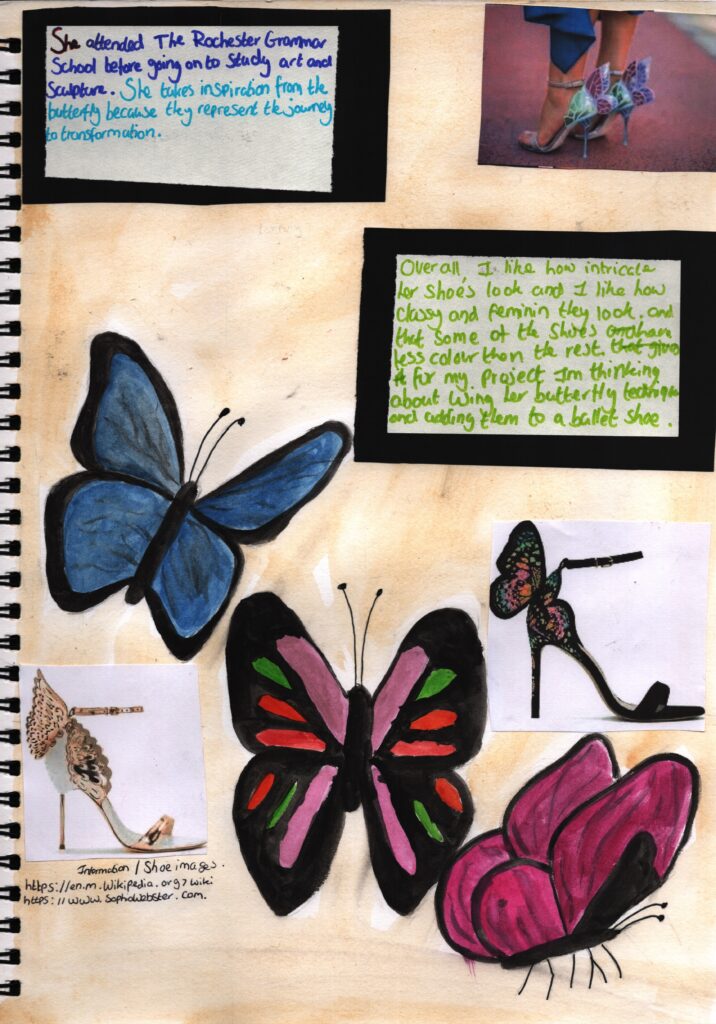 She attended The Rochester Grammar
School before going on to Study art and
Sculpture. She takes inspiration from the
butterfly because they represent the journey
to transformation.
Overall, I like how intricate
her shoe's look and I like how
classy and feminin they look. and
that some of the shoes
less colour than the rest. that gives
it for my project Im thinking
about wing her butterfly technique
and adding them to a ballet shoe.
Information / Shoe images.
https://en.m.wikipedia.org/wiki
https://www.sophiawebster.com.